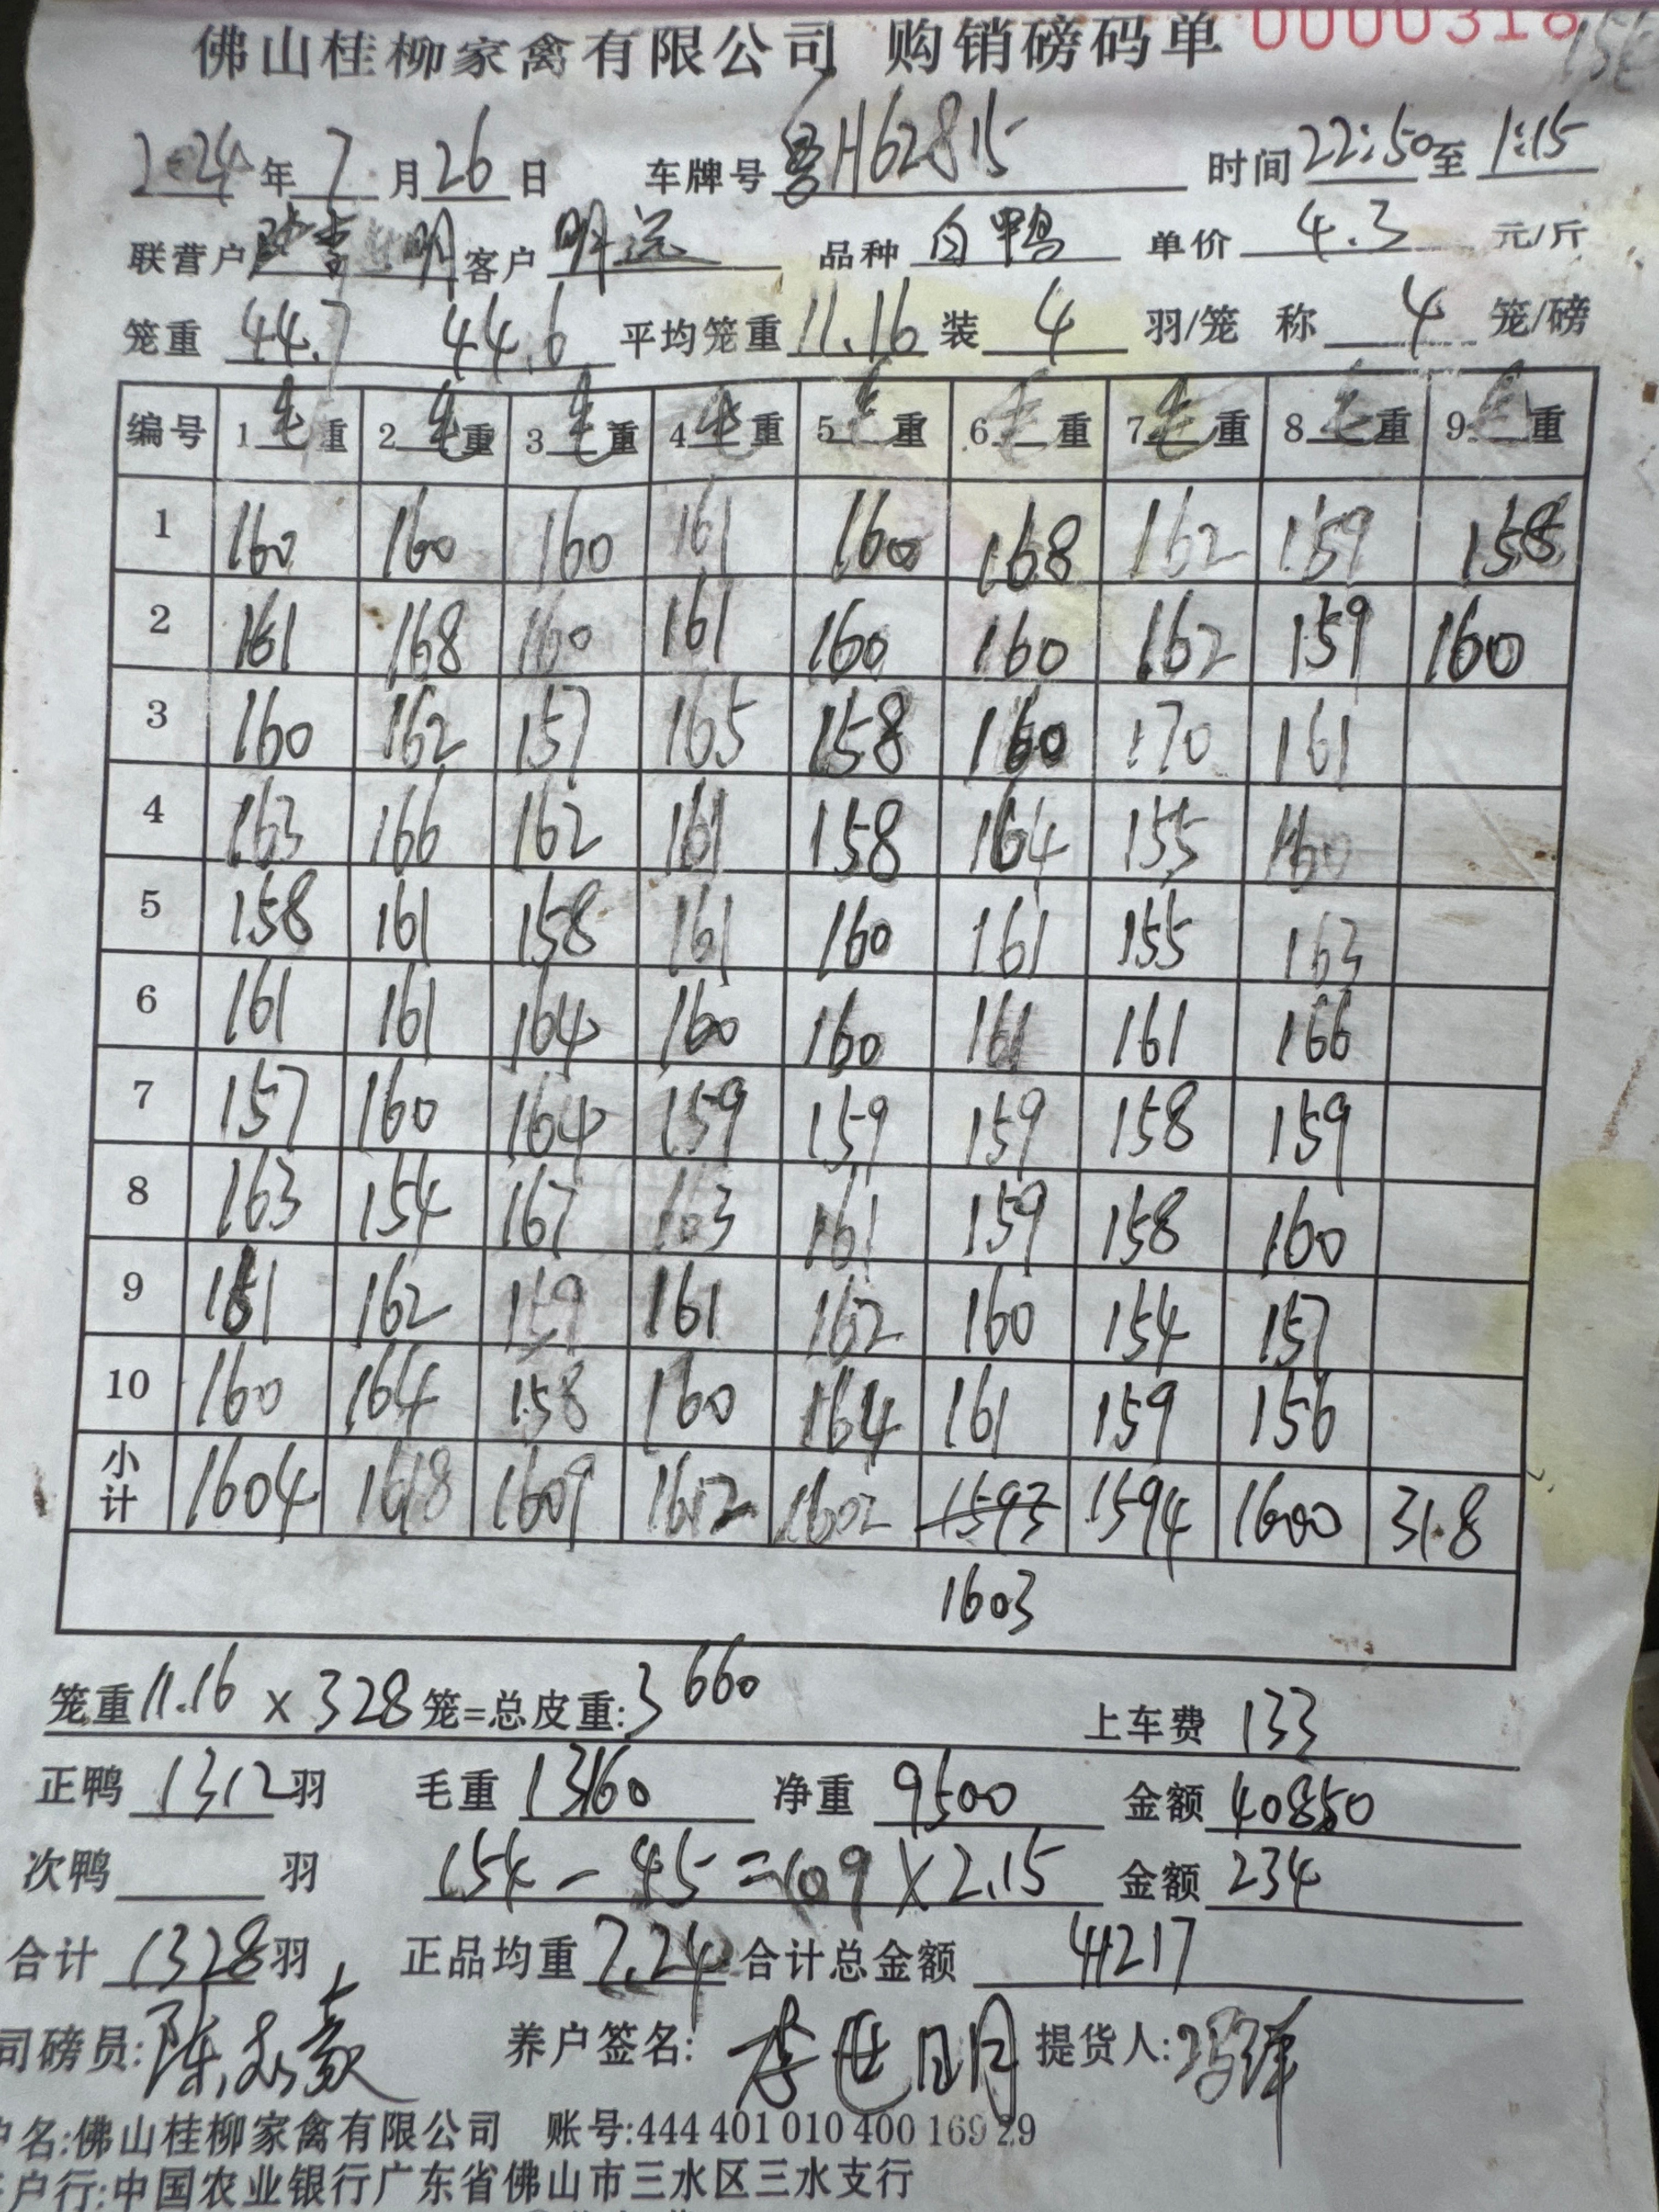 佛山桂柳家禽有限公司 购销磅码单 0000318
2024年7月26日 车牌号 粤H62815 时间22:50至1:15
联营户 李世明 客户 明远 品种 白鸭 单价 4.3 元/斤
笼重 44.7 44.6 平均笼重 11.16 装 4 羽/笼 称 4 笼/磅
编号 1毛重 2毛重 3毛重 4毛重 5毛重 6毛重 7毛重 8毛重 9毛重
1 160 160 160 161 160 168 162 159 158
2 161 168 160 161 160 160 162 159 160
3 160 162 157 165 158 160 170 161
4 163 166 162 161 158 164 155 160
5 158 161 158 161 160 161 155 163
6 161 161 164 160 160 161 161 166
7 157 160 164 159 159 159 158 159
8 163 154 167 163 161 159 158 160
9 161 162 159 161 162 160 154 157
10 160 164 158 160 164 161 159 156
小计 1604 1618 1609 1612 1602 1593 1594 1600 318
1603
笼重11.16 × 328笼=总皮重:3660 上车费 133
正鸭 1312 羽 毛重 13160 净重 9500 金额 40850
次鸭 羽 154-45=109×2.15 金额 234
合计 1328 羽 正品均重 7.24 合计总金额 41217
司磅员:陈 毅 养户签名:李世明 提货人:冯祥
户名:佛山桂柳家禽有限公司 账号:444 401 010 400 169 29
户行:中国农业银行广东省佛山市三水区三水支行